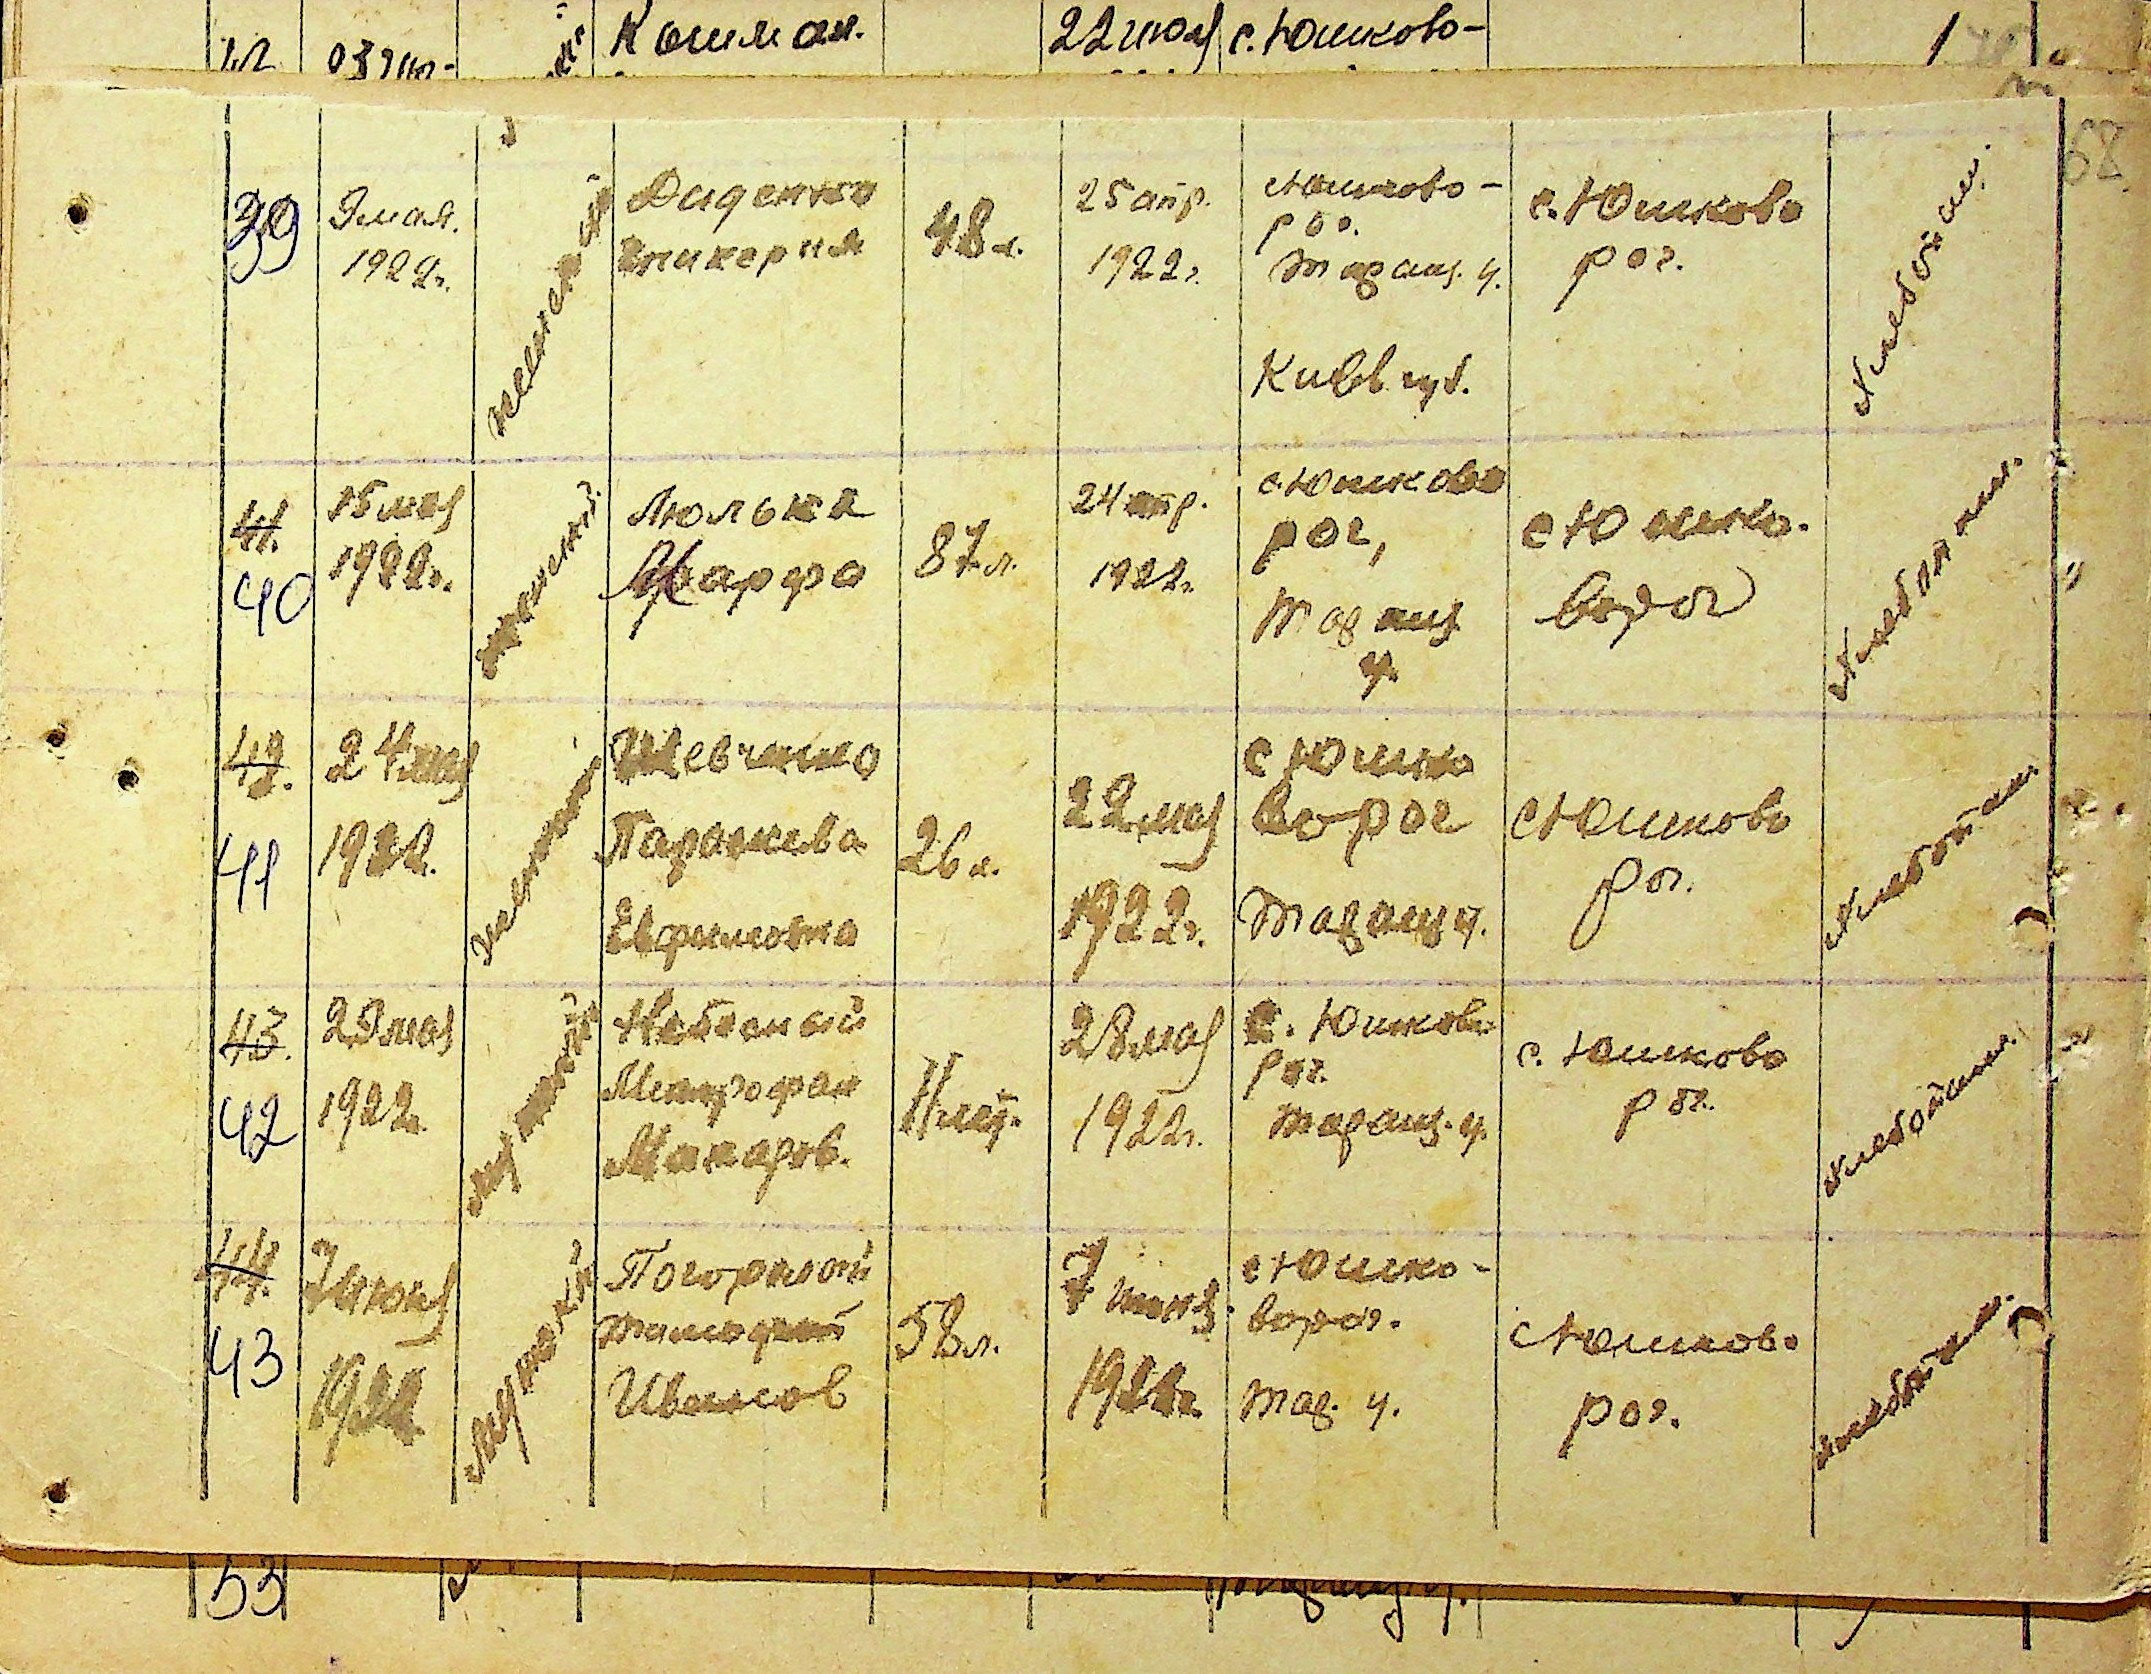 Кошман. 22 июля с. Юшково-
39 9 мая. 1922г. женский Диденко Гликерия 48 л. 25 апр. 1922г. с Юшково-
рог. Таращ. у. Киев. губ. с. Юшково рог. Хлебопаш.
41. 40 15 мая 1922г. женский Люлька Марфа 87 л. 24 апр. 1922г. с Юшково
рог, Таращ у. с Юшко-
ворог Хлебопаш.
42. 41 24 мая 1922. женский Шевченко Параскева Евфимовна 26 л. 22 мая 1922г. с Юшко
ворог Таращ у. с Юшково
рог. Хлебопаш.
43. 42 29 мая 1922г. мужский Митрофан Макаров. 11 мес. 28 мая 1922г. с. Юшково
рог. Таращ. у. с. Юшково
рог. Хлебопаш.
44. 43 7 июня 1922 мужский Погорелый Тимофей Иванов 58 л. 7 июня 1922г. с Юшко-
ворог. Тар. у. с Юшково
рог. Хлебопаш.
53